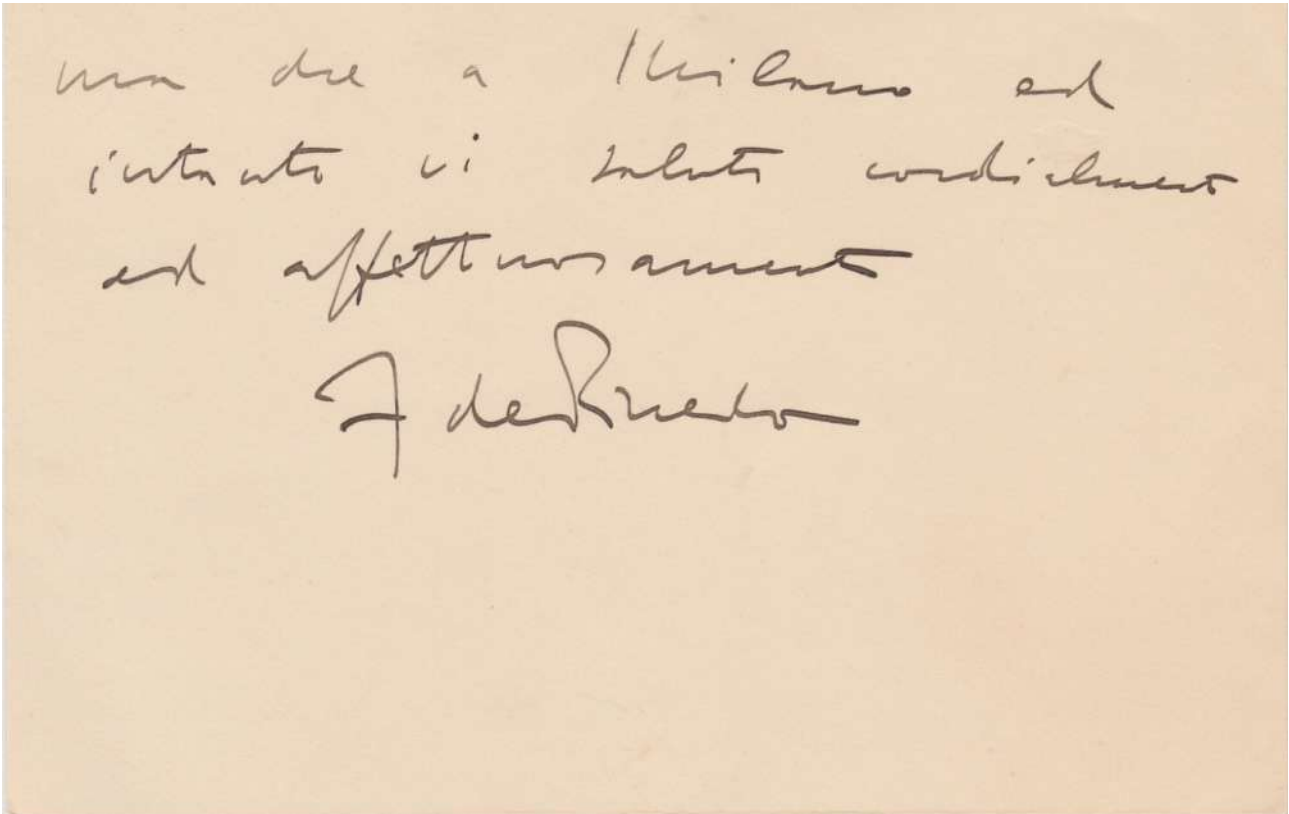 a Milano ed
intanto vi saluto cordialmente
ed affettuosamente
F de Pinedo